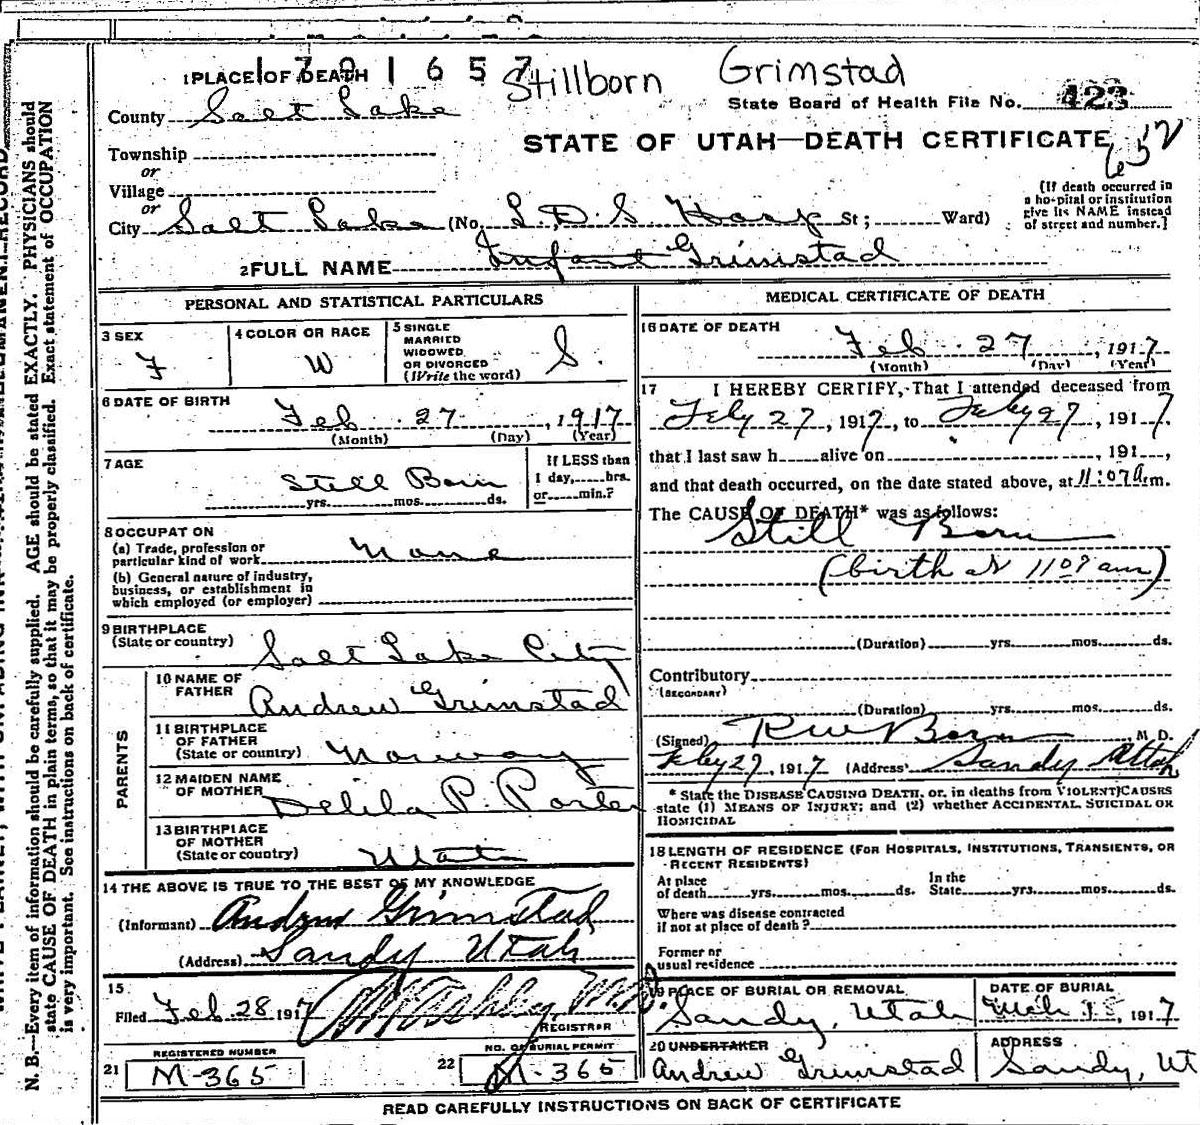 1 7 0 1 6 5 7
Stillborn Grimstad
1 PLACE OF DEATH
State Board of Health File No. 423
County Salt Lake
STATE OF UTAH—DEATH CERTIFICATE
652
Township
or
Village
or
City Salt Lake (No. L.D.S. Hosp St; Ward)
(If death occurred in
a hospital or institution
give its NAME instead
of street and number.]
2 FULL NAME Infant Grimstad
PERSONAL AND STATISTICAL PARTICULARS
3 SEX
F
4 COLOR OR RACE
W
5 SINGLE
MARRIED
WIDOWED
OR DIVORCED
(Write the word)
S.
6 DATE OF BIRTH
Feb. 27, 1917
(Month) (Day) (Year)
7 AGE
Still Born
yrs. mos. ds.
If LESS than
1 day, hrs.
or min.?
8 OCCUPATION
(a) Trade, profession or
particular kind of work None
(b) General nature of industry,
business, or establishment in
which employed (or employer)
9 BIRTHPLACE
(State or country)
Salt Lake City
PARENTS
10 NAME OF
FATHER
Andrew Grimstad
11 BIRTHPLACE
OF FATHER
(State or country) Norway
12 MAIDEN NAME
OF MOTHER
Delila P. Porter
13 BIRTHPLACE
OF MOTHER
(State or country) Utah
14 THE ABOVE IS TRUE TO THE BEST OF MY KNOWLEDGE
(Informant) Andrew Grimstad
(Address) Sandy Utah
15
Filed Feb. 28, 1917
REGISTRAR
REGISTERED NUMBER
21 M-365
NO. OF BURIAL PERMIT
22 M-365
MEDICAL CERTIFICATE OF DEATH
16 DATE OF DEATH
Feb. 27, 1917
(Month) (Day) (Year)
17 I HEREBY CERTIFY, That I attended deceased from
Feby 27, 1917, to Feby 27, 1917.
that I last saw h alive on , 191 ,
and that death occurred, on the date stated above, at 11:07 a.m.
The CAUSE OF DEATH* was as follows:
Still Born
(birth at 11 07 am)
(Duration) yrs. mos. ds.
Contributory
(SECONDARY)
(Duration) yrs. mos. ds.
(Signed) , M. D.
Feby 27, 1917 (Address) Sandy Utah
* State the DISEASE CAUSING DEATH, or, in deaths from VIOLENT CAUSES
state (1) MEANS OF INJURY; and (2) whether ACCIDENTAL, SUICIDAL OR
HOMICIDAL
18 LENGTH OF RESIDENCE (FOR HOSPITALS, INSTITUTIONS, TRANSIENTS, OR
RECENT RESIDENTS)
At place
of death yrs. mos. ds.
In the
State yrs. mos. ds.
Where was disease contracted
if not at place of death?
Former or
usual residence
19 PLACE OF BURIAL OR REMOVAL
Sandy, Utah
DATE OF BURIAL
, 1917
20 UNDERTAKER
Andrew Grimstad
ADDRESS
Sandy, Ut
READ CAREFULLY INSTRUCTIONS ON BACK OF CERTIFICATE
N. B.—Every item of information should be carefully supplied. AGE should be stated EXACTLY. PHYSICIANS should
state CAUSE OF DEATH in plain terms, so that it may be properly classified. Exact statement of OCCUPATION
is very important. See instructions on back of certificate.